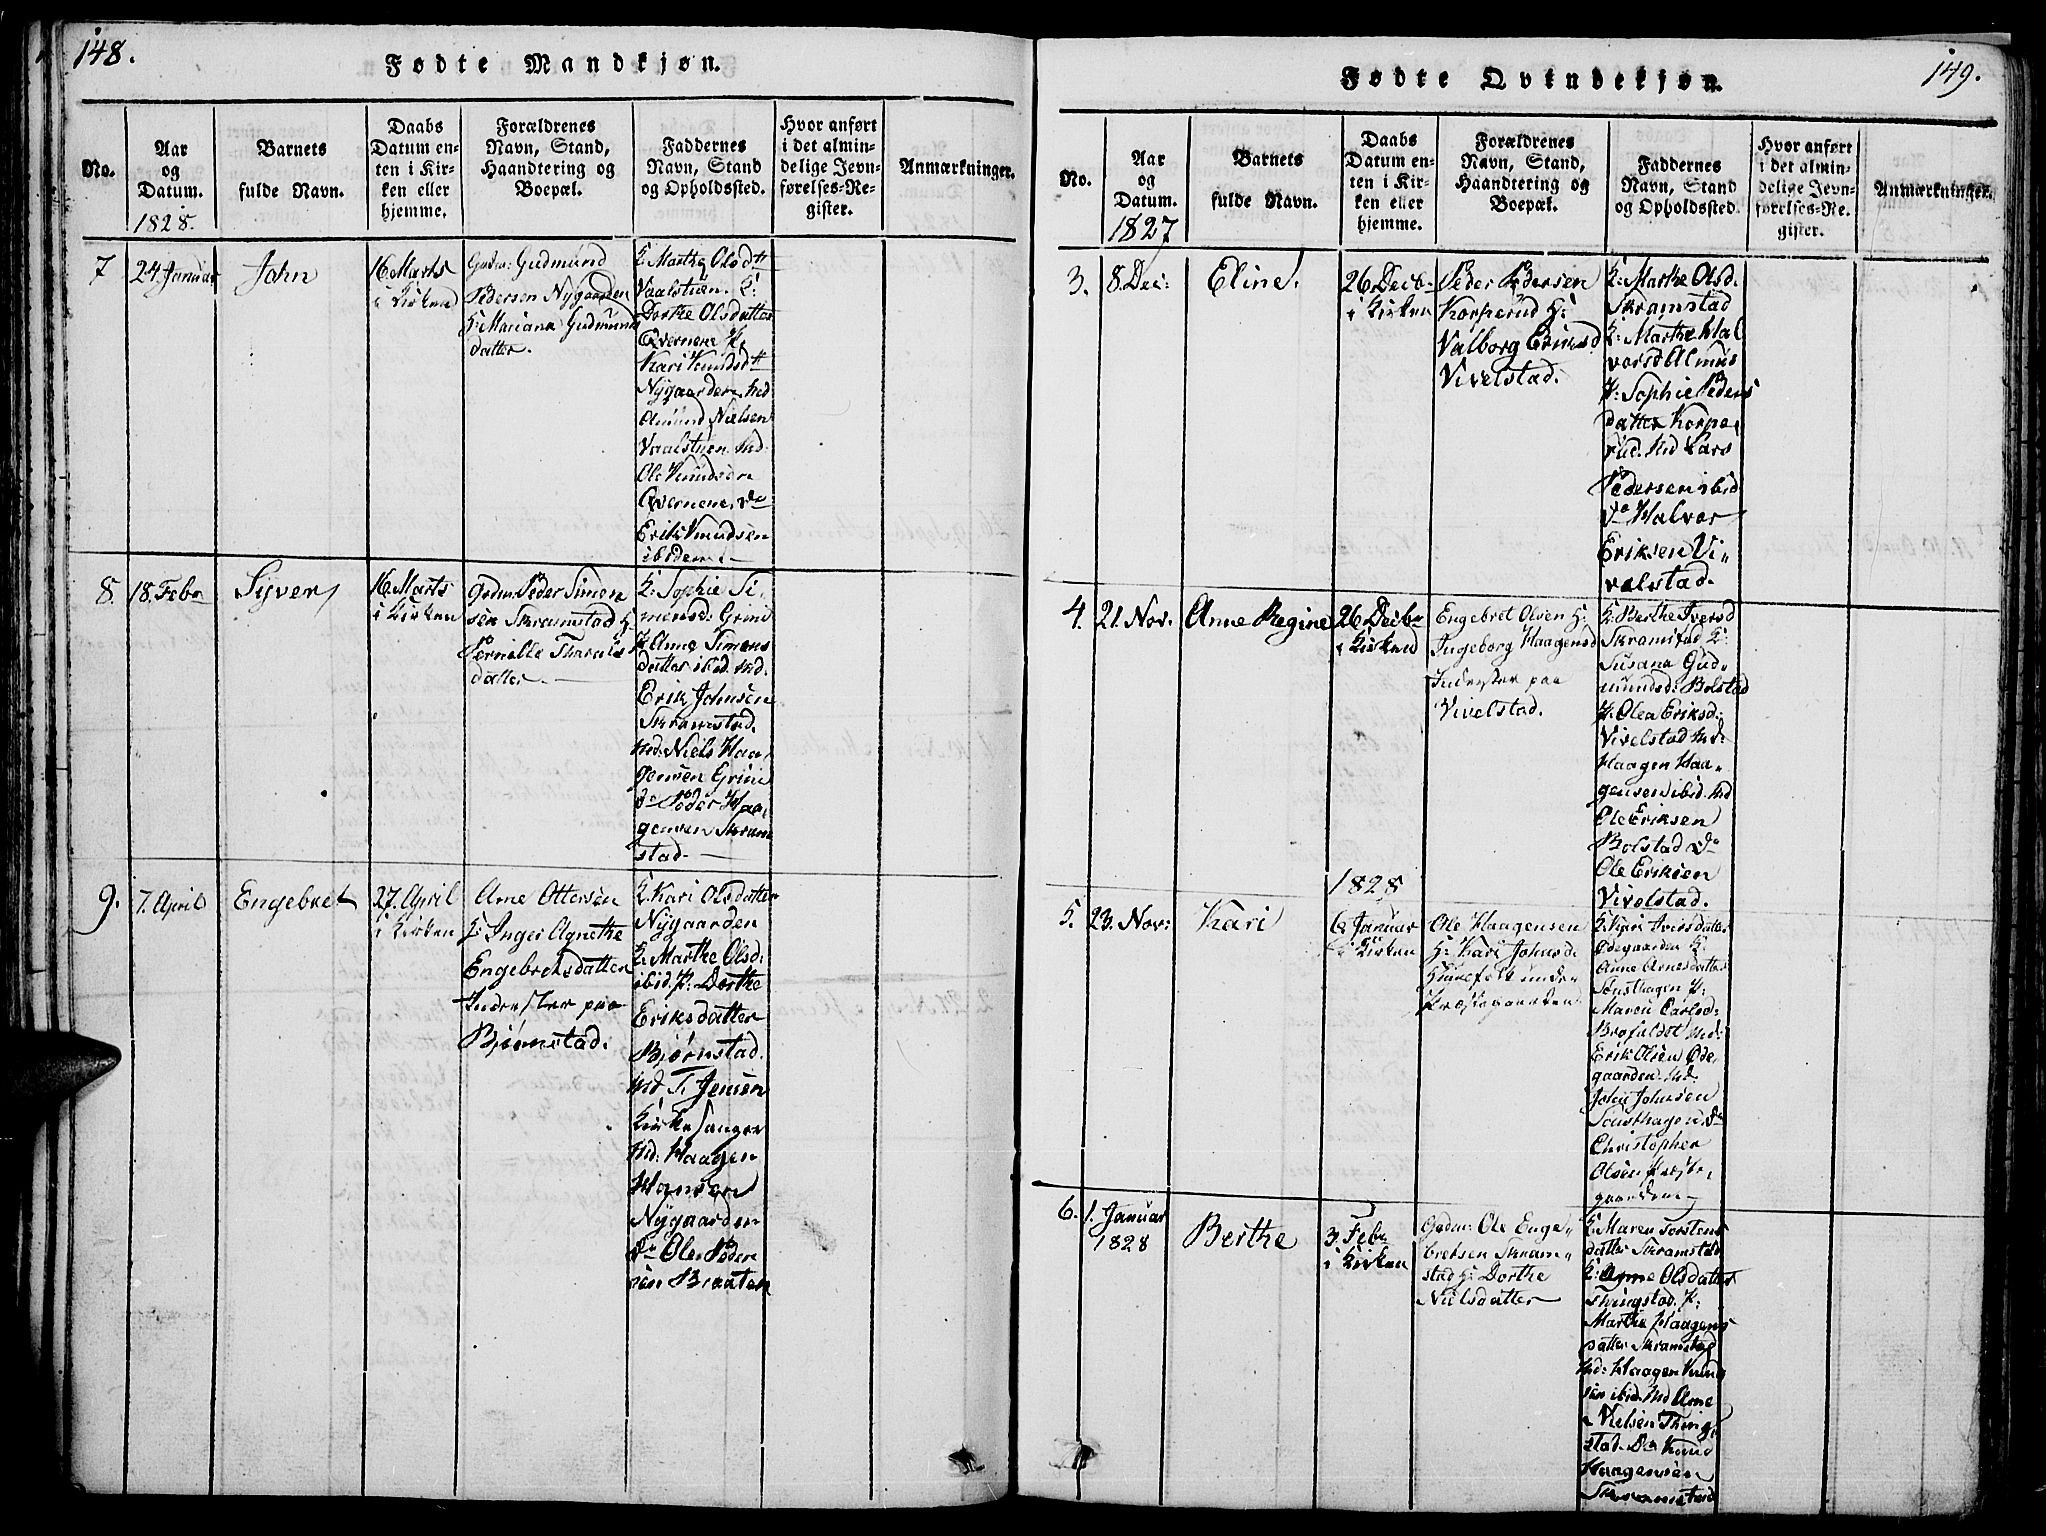 148.
Fødte Mandkjøn.
No.
Aar
og
Datum.
1828.
Barnets
fulde Navn.
Daabs
Datum en-
ten i Kir-
ken eller
hjemme.
Forældrenes
Navn, Stand,
Haandtering og
Boepæl.
Faddernes
Navn, Stand
og Opholdssted.
Hvor anført
i det almin-
delige Jevn-
førelses-Re-
gister.
Anmærkninger.
7
24 Januar
John
16 Marts
i Kirken
Gudmund
Pedersen Nygaarden
H: Mariana Gudmunds
datter.
K: Marthe Olsdtt
Vaalstuen. K:
Dorthe Olsdatter
Qvernene P.
Kari Knudsdtt
Nygaarden. Md
Amund Nielsen
Vaalstuen. Md.
Ole Knudsen
Qvernene, do
Erik Knudsen
ibidem.
8.
18. Febr
Syver
16. Marts
i Kirken
Gdm. Peder Simen
sen Skramstad H.
Pernille Tharals
datter.
K. Sophie Si-
mensd: Grini
P. Anne Simens
datter ibid. Md.
Erik Johnsen
Skramstad.
Md. Niels Haa-
gensen Grini
do Peder Haa-
gensen Skram
stad.
9.
7. April
Engebret
27. April
i Kirken
Arne Ottersen
H: Inger Agnethe
Engebretsdatter
Inderster paa
Bjørnstad.
K. Kari Olsdatter
Nygaarden
K. Marthe Olsd:
ibid. P: Dorthe
Eriksdatter
Bjørnstad.
Md. T. Jensen
Kirkesanger
Md: Haagen
Hansen
Nygaarden
do Ole Peder
sen Braaten
149.
Fødte Qvindekjøn.
No.
Aar
og
Datum.
1827
Barnets
fulde Navn.
Daabs
Datum en-
ten i Kir-
ken eller
hjemme.
Forældrenes
Navn, Stand,
Haandtering og
Boepæl.
Faddernes
Navn, Stand
og Opholdssted.
Hvor anført
i det almin-
delige Jevn-
førelses-Re-
gister.
Anmærkninger.
3.
8. Dec:
Eline.
26 Decb.
i Kirken
Peder Pedersen
Korperud H:
Valborg
Vivelstad.
K: Marthe Olsd.
Skramstad
K: Marthe Hal
vorsd Almus
P: Sophie Peders
datter Korpe-
rud. Md Lars
Pedersen ibid
do Halvor
Eriksen Vi-
velstad.
4.
21. Nov.
Anne Regine
26 Decbr
i Kirken
Engebret Olsen H:
Ingeborg Haagensd
Inderster paa
Vivelstad.
K: Berthe Iversd
Skramstad K:
Susana Gud-
mundsd: Bolstad
P: Olea Eriksd:
Vivelstad Md:
Haagen Haa-
gensen ibid. Md
Ole Eriksen
Bolstad do
Ole Eriksen
Vivelstad.
5.
23. Nov:
Kari
1828
6 Januar
i Kirken
Ole Haagensen
H: Kari Johnsd.
Huusfolk under
Præstegaarden
K: Kari Iversdatter
Ødegaarden K:
Anne Arnesdatter
Sousthagen P:
Maren Carlsd:
Md:
Erik Olsen Øde
gaarden. Md.
John Johnsen
Sousthagen do
Christopher
Olsen Præste-
gaarden
6.
1. Januar
1828
Berthe
3 Febr
i Kirken
Gdm: Ole Enge-
bretsen Skram-
stad H: Dorthe
Nielsdatter
K. Maren Torstens
datter Skramstad
K: Anne Olsdatter
Thingstad. P:
Marthe Haagens
datter Skramstad
Md: Haagen Knud
sen ibid. Md Arne
Nielsen Thing-
stad. Do Knud
Haagensen
Skramstad